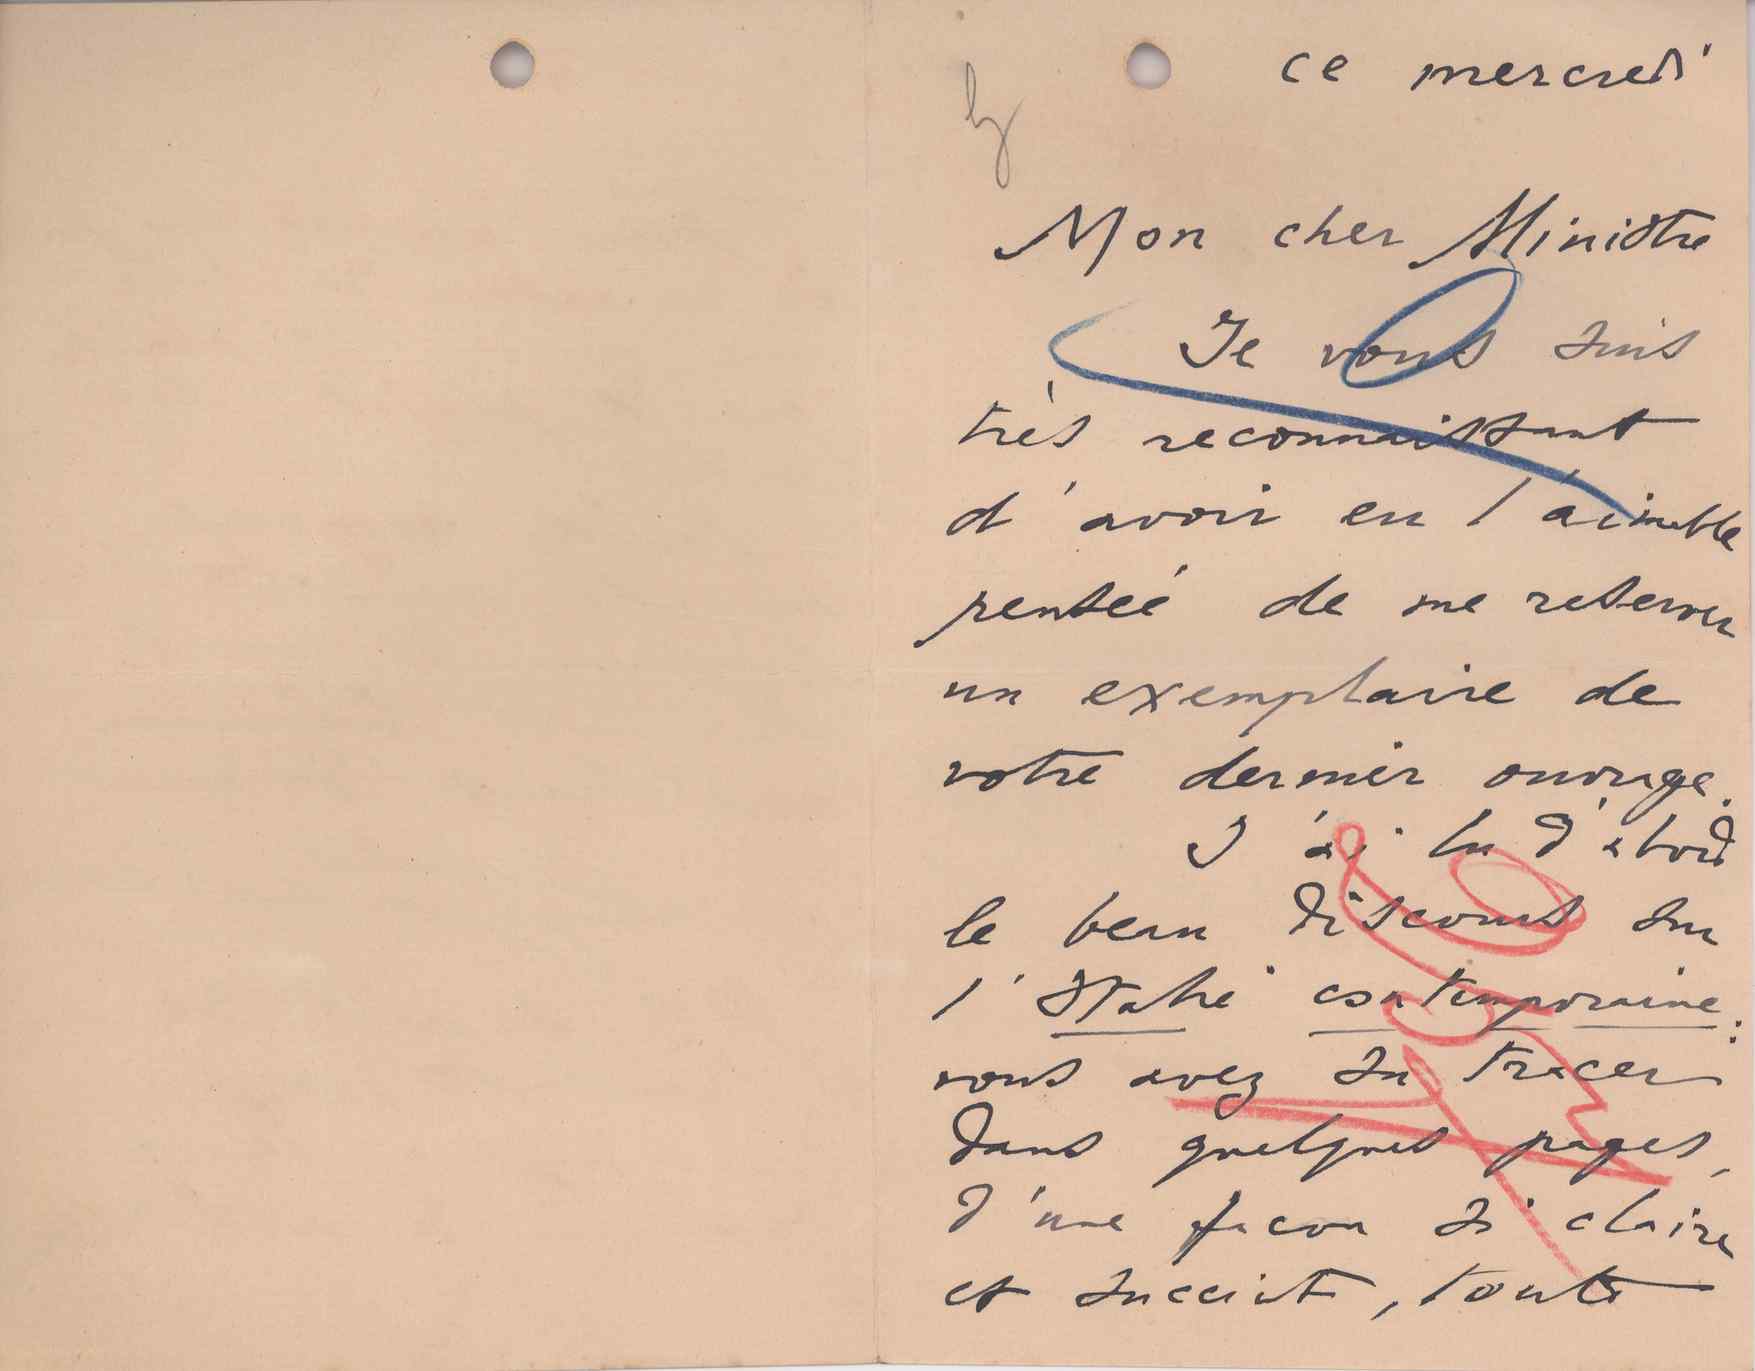 ce mercredi
Mon cher Ministre
Je vous suis
très reconnaissant
d'avoir eu l'aimable
pensée de me reserver
un exemplaire de
votre dernier ouvrage.
J'ai lu d'abord
le beau discours sur
l'Italie contemporaine :
vous avez su tracer
dans quelques pages,
d'une facon si claire
et succinte, toute